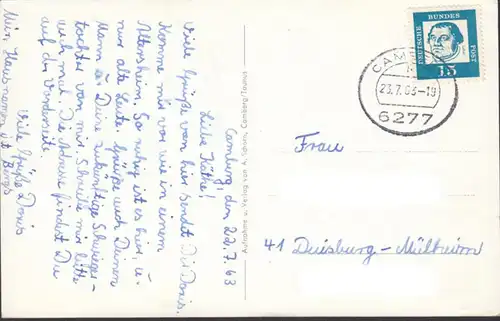 Camburg, den 22.7.63
Liebe Käthe!
Viele Grüße von hier sendet Dir Doris.
Komme mir vor wie in einem
Altersheim. So ruhig ist es hier, u.
nur alte Leute. Grüße auch Deinen
Mann u. Deine zukünftige Schwieger-
tochter von mir. Schreibe mir bitte
auch mal. Die Adresse findest Du
auf der Vorderseite.
Viele Grüße Doris
Mein Hausname ist Bergs
Aufnahme u. Verlag von A. Camberg/Taunus
DEUTSCHE BUNDES POST
15
CAMB
23.7.63-19
6277
Frau
41 Duisburg-Mülheim